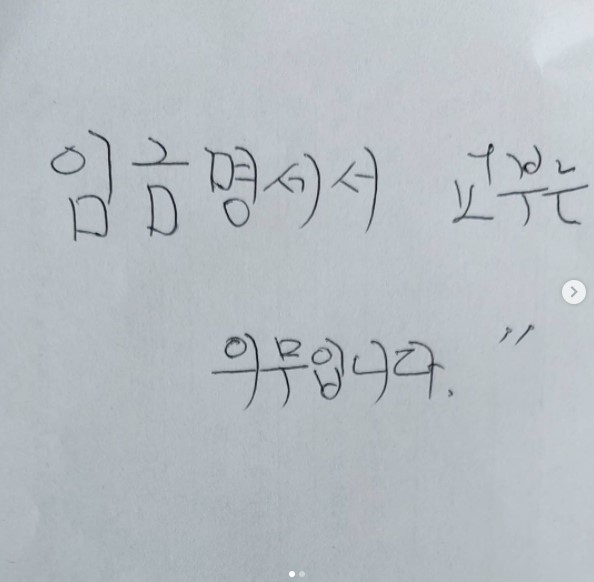 임금명세서 교부는
의무입니다."